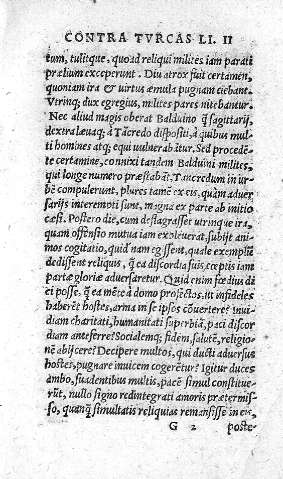 CONTRA TVRCAS LI. II
tum, tulitque, quoad reliqui milites iam parati
prælium exceperunt. Diu atrox fuit certamen,
quoniam ira & virtus æmula pugnam ciebant.
Vtrinq; dux egregius, milites pares nitebantur.
Nec aliud magis oberat Balduino q̃ sagittarij,
dextra leuaq; à Tãcredo dispositi, à quibus mul
ti homines atq; equi vulnerabãtur. Sed procedẽ
te certamine, connixi tandem Balduini milites,
qui longe numero præstabãt, Tancredum in vr-
bẽ compulerunt, plures tamẽ ex eis, quàm aduer
sarijs interempti sunt, magna ex parte ab initio
cæsi. Postero die, cum deflagrasset vtrinque ira,
quam offensio mutua iam exoleuerat, subijt ani-
mos cogitatio, quid nam egissent, quale exemplũ
dedissent reliquis, q̃ ea discordia suis cœptis iam
partæ gloriæ aduersaretur. Quid enim fœdius di
ci posse, q̃ ea mẽte à domo profectos, vt in infideles
haberẽt hostes, arma in se ipsos cõuertere? inui-
diam charitati, humanitati superbiã, paci discor
diam anteferre? Socialemq; fidem, salutẽ, religio-
nẽ abijcere? Decipere multos, qui ducti aduersus
hostes, pugnare inuicem cogerẽtur? Igitur duces
ambo, suadentibus multis, pacẽ simul constitue-
rũt, nullo signo redintegrati amoris prætermis-
so, quanq̃ simultatis reliquias remansisse in eis,
G 2 poste